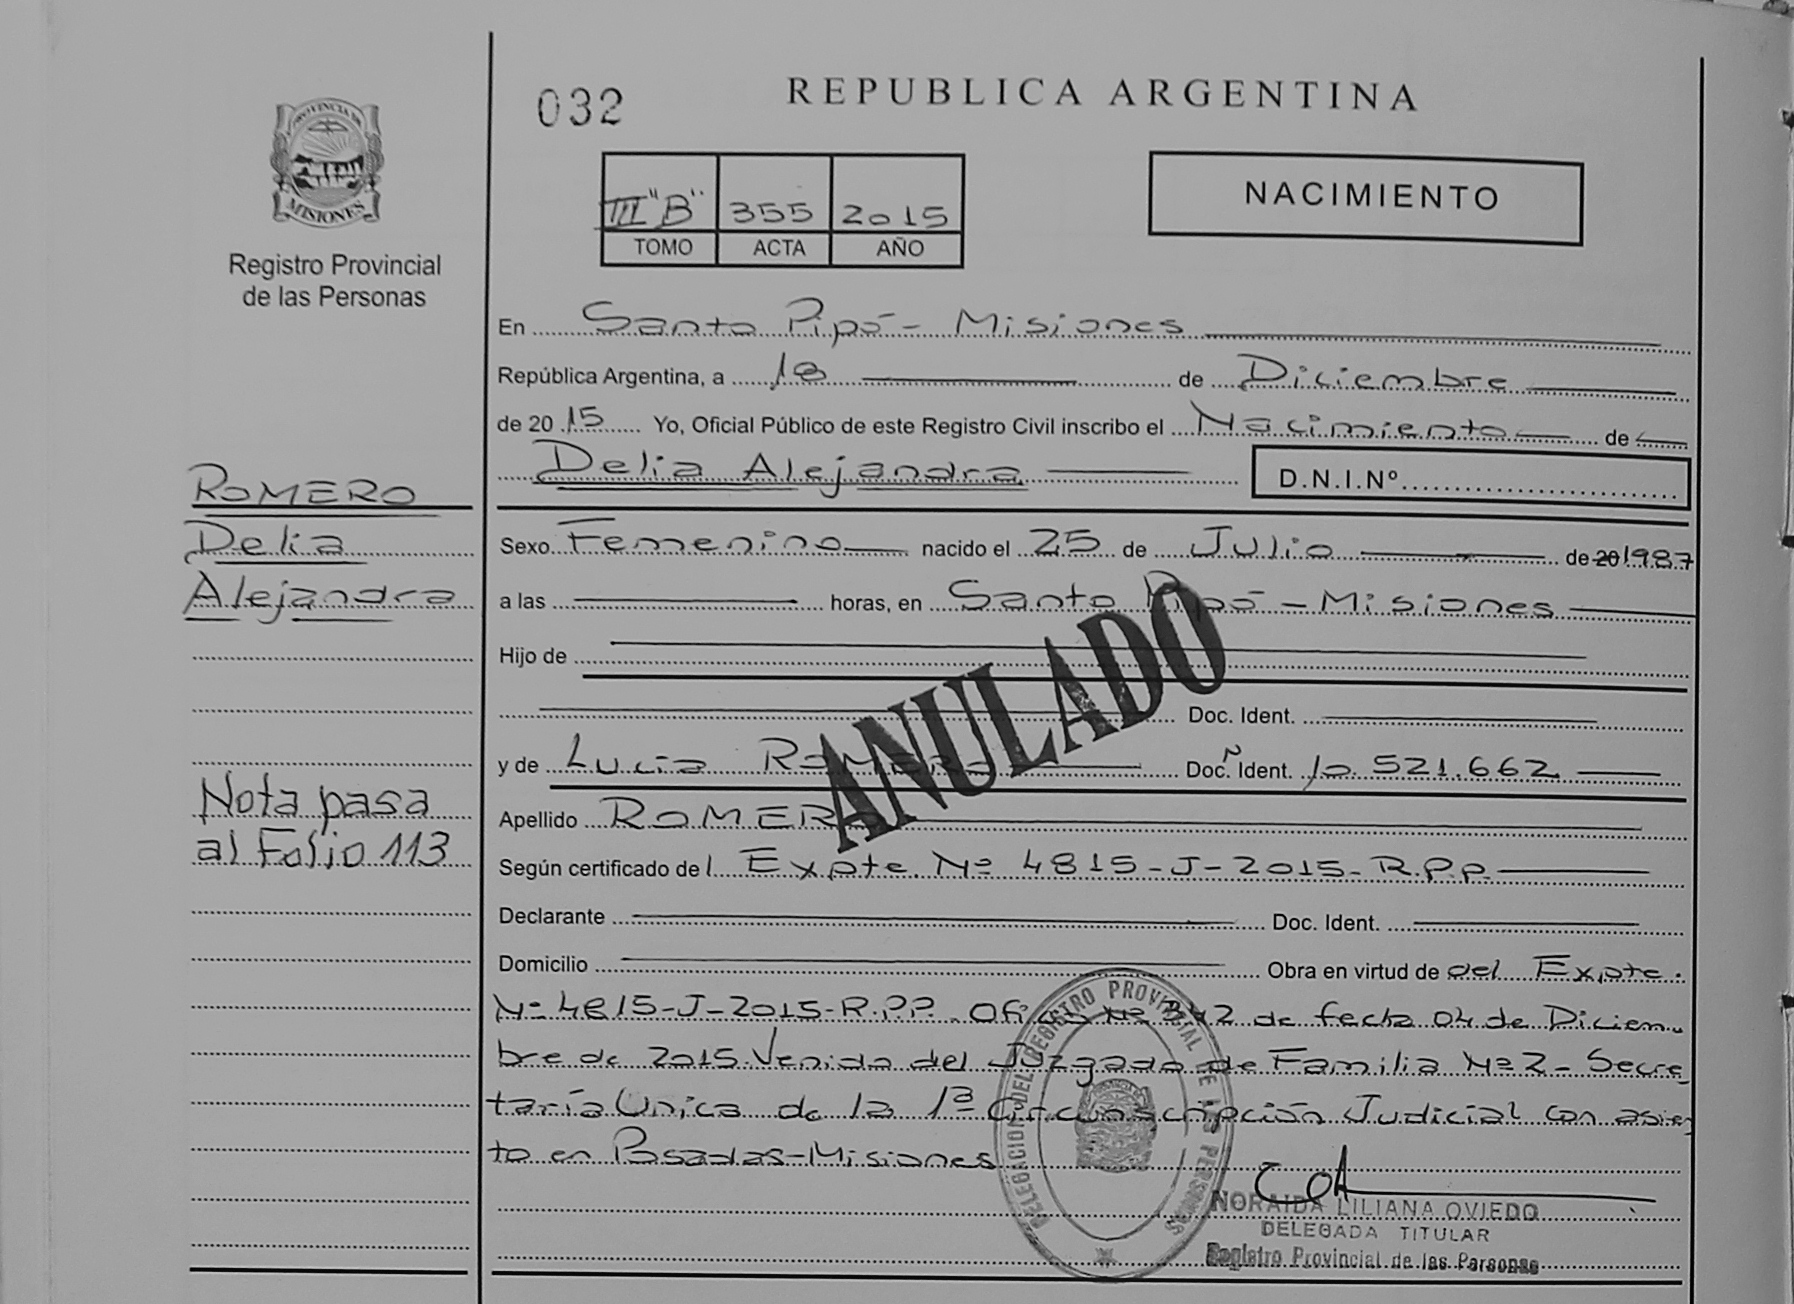 032
REPUBLICA ARGENTINA
PROVINCIA DE
MISIONES
Registro Provincial
de las Personas
III "B" 355 2015
TOMO ACTA AÑO
NACIMIENTO
En Santo Pipó - Misiones
República Argentina, a 18 de Diciembre
de 2015 Yo, Oficial Público de este Registro Civil inscribo el Nacimiento de
Delia Alejandra D.N.I.Nº
ROMERO
Delia
Alejandra
Sexo Femenino nacido el 25 de Julio de 20 1987
a las horas, en Santo Pipó - Misiones
Hijo de
Doc. Ident.
y de Lucia ROMERO Doc. Ident. Nº 10.521.662
ANULADO
Apellido ROMERO
Nota pasa
al Folio 113
Según certificado del Expte. Nº 4815-J-2015-R.P.P.
Declarante Doc. Ident.
Domicilio Obra en virtud de del Expte.
Nº 4815-J-2015-R.P.P. Oficio Nº 342 de fecha 04 de Diciem
bre de 2015. Venido del Juzgado de Familia Nº 2 - Secre
taría Unica de la 1ª Circunscripción Judicial con asien
to en Posadas - Misiones
DELEGACION DEL REGISTRO PROVINCIAL DE LAS PERSONAS
NORAIDA LILIANA OVIEDO
DELEGADA TITULAR
Registro Provincial de las Personas